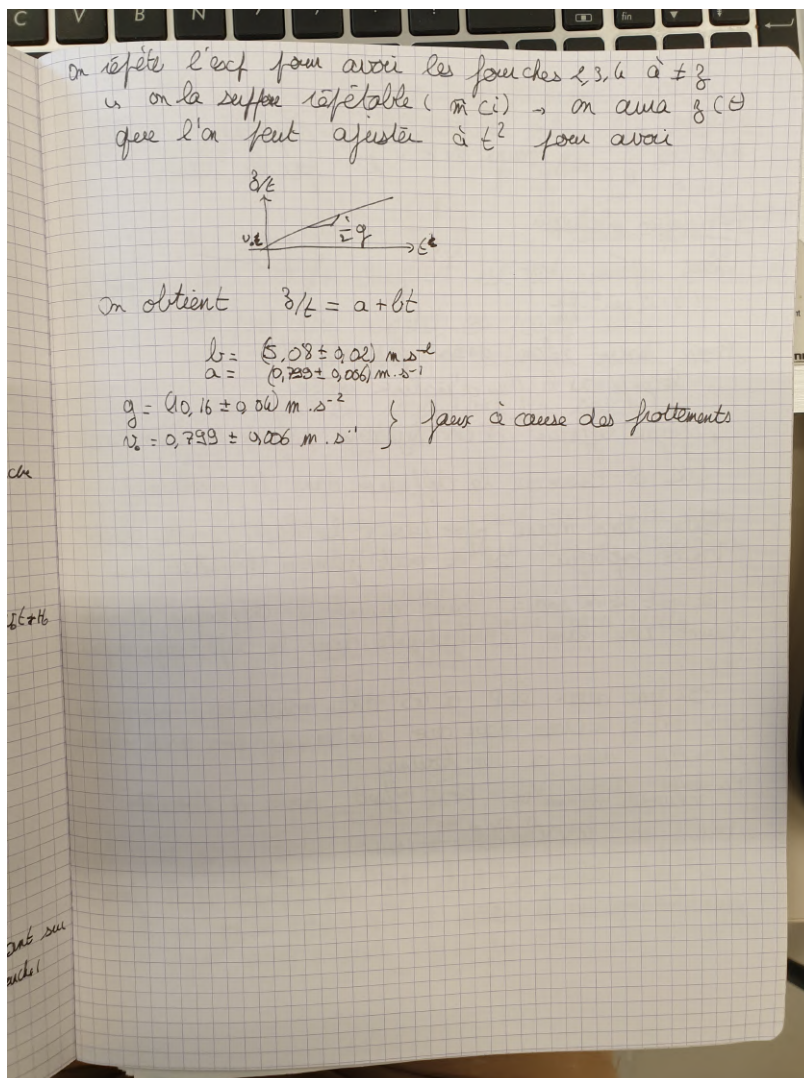 C V B N fin
On répète l'exp pour avoir les fourches 2,3,4 à ≠ z
↳ on la suppose répétable (m̂ ci) → on aura z(t)
que l'on peut ajuster à t² pour avoir
z/t
v₀
1/2 g
t
On obtient z/t = a + bt
b = (5,08 ± 0,02) m.s⁻²
a = (0,799 ± 0,006) m.s⁻¹
g = (10,16 ± 0,04) m.s⁻²
v₀ = 0,799 ± 0,006 m.s⁻¹
} faux à cause des frottements
che
t+H₀
ant sur